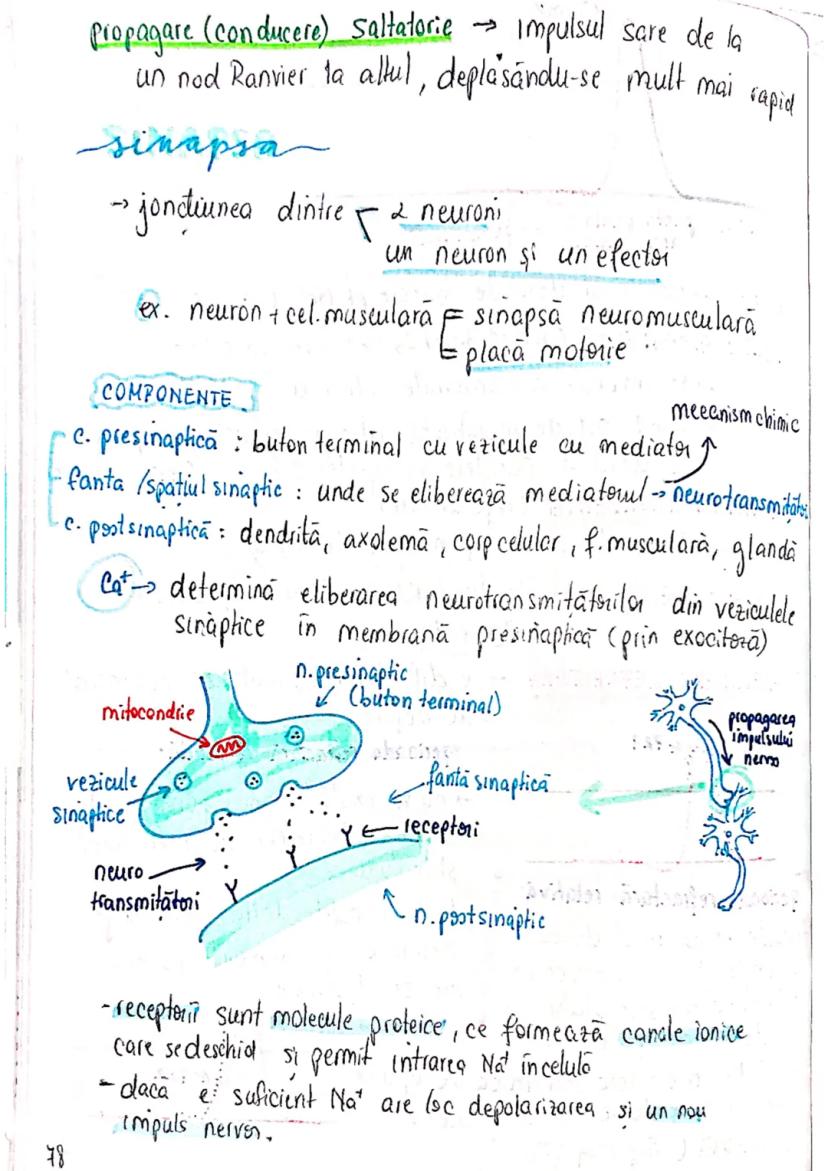 propagare (conducere) saltatorie → impulsul sare de la
un nod Ranvier la altul, deplasându-se mult mai rapid
sinapsa
→ joncțiunea dintre 2 neuroni
un neuron și un efector
ex. neuron + cel. musculară = sinapsă neuromusculară
= placă motorie
COMPONENTE
mecanism chimic
c. presinaptică : buton terminal cu vezicule cu mediator
fanta /spațiul sinaptic : unde se eliberează mediatorul → neurotransmițător
c. postsinaptică : dendrită, axolemă, corp celular, f. musculară, glandă
Ca⁺ → determină eliberarea neurotransmițătorilor din veziculele
sinaptice în membrană presinaptică (prin exocitoză)
n. presinaptic
(buton terminal)
mitocondrie
propagarea
impulsului
nervos
vezicule
sinaptice
fantă sinaptică
receptori
neuro
transmițători
n. postsinaptic
- receptorii sunt molecule proteice, ce formează canale ionice
care se deschid și permit intrarea Na⁺ în celulă
- dacă e suficient Na⁺ are loc depolarizarea și un nou
impuls nervos.
78